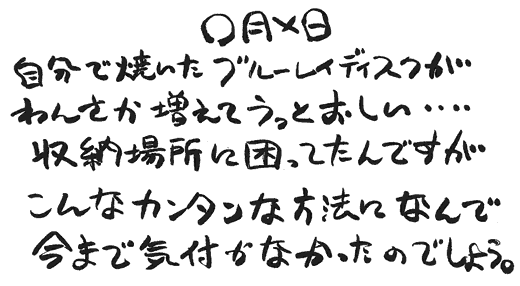 〇月×日
自分で焼いたブルーレイディスクが
わんさか増えてうっとおしい・・・・
収納場所に困ってたんですが
こんなカンタンな方法になんで
今まで気付かなかったのでしょう。